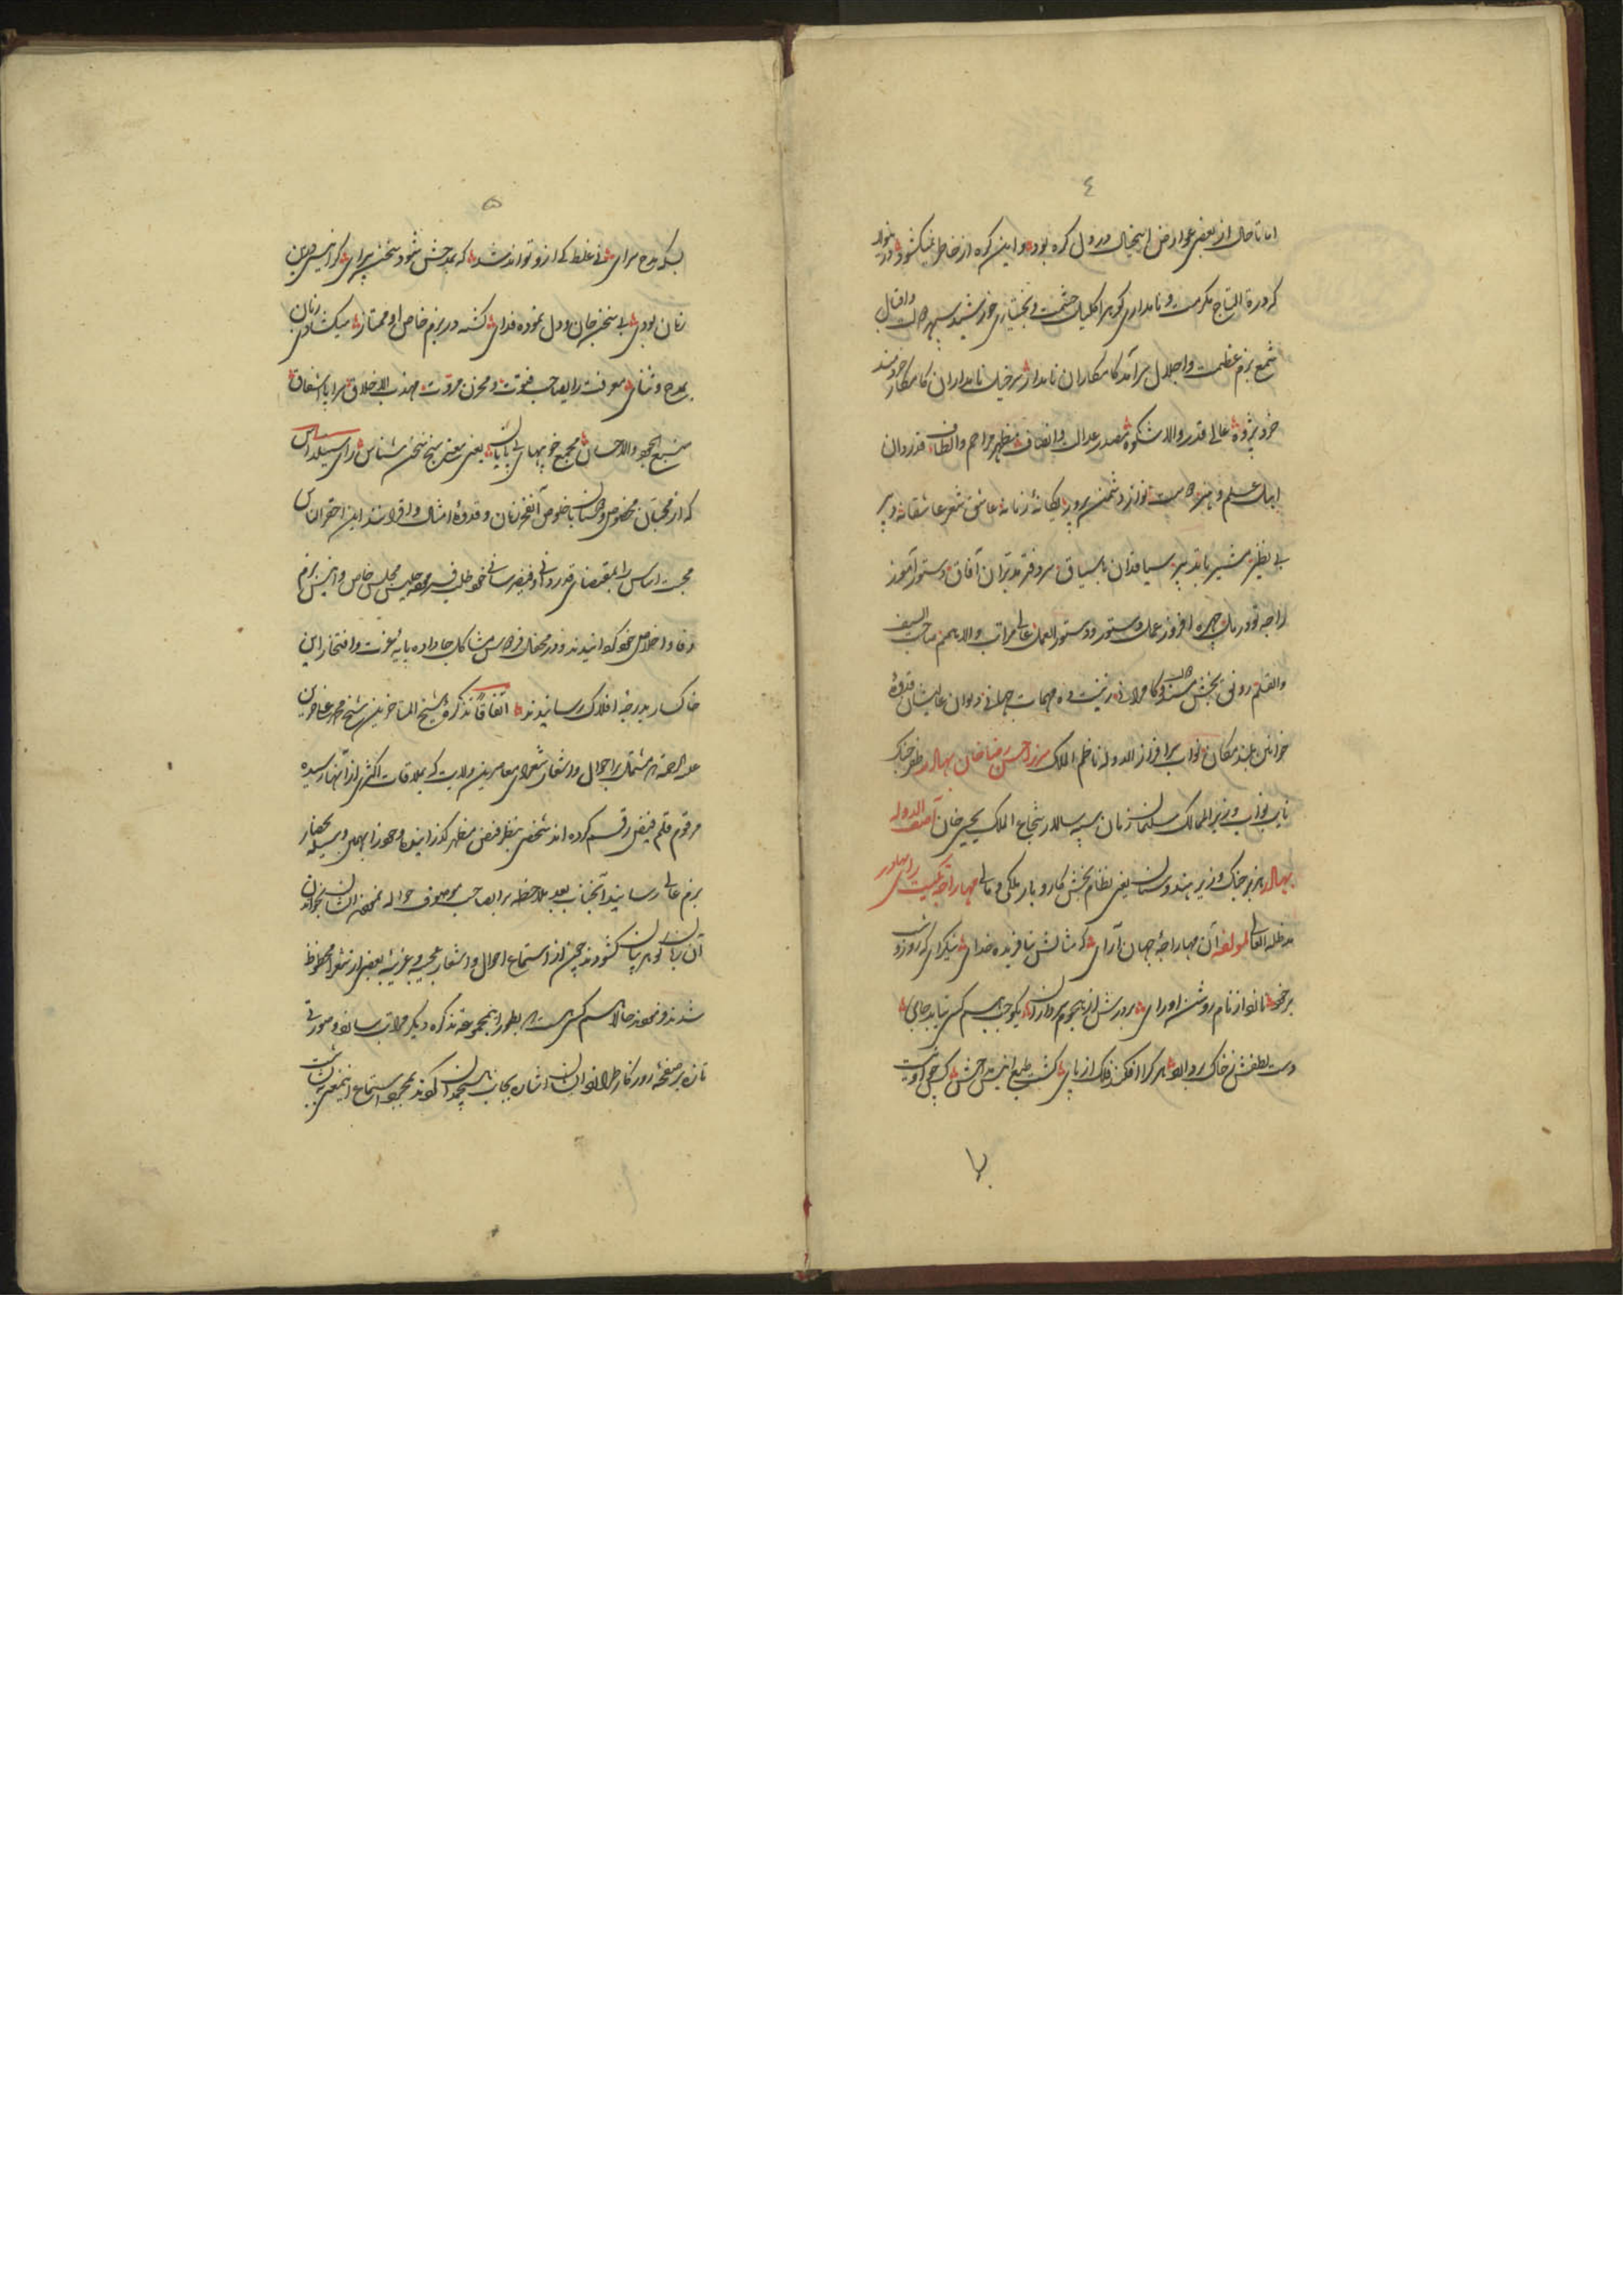 ٤
اما تا حال از بعضی عوارض اینخیال در دل گره بود و این گره از خاطر نمیکشود درینولا
که درة التاج مکرمت و نامداری گوهر اکلیل حشمت و بختیاری خورشید سپهر دولت و اقبال
شمع بزم عظمت و اجلال سرآمد کامکاران نامدار سرخیل نامداران کامکار خردمند
خرد پژوه عالی قدر والا شکوه مصدر عدالت و انصاف مظهر مراحم و الطاف قدردان
اهل علم و هنر دوست نواز دشمن پرور یگانهٔ زمانه عاشق شعر عاشقانه دبیر
بی نظیر مشیر با تدبیر سیاقدان باسیاق سر دفتر مدبران آفاق دستور آموز
راجه تودرمل چهره افروز عمل دستور و دستور العمل عالی مراتب والا هم صاحب السیف
والقلم رونق بخش مسند کامرانی زینت ده مهمات جهانی دیوان عالیشان قدوهٔ
خوانین بلند مکان نواب سرافراز الدوله ناظم الملک مرزا حسن رضا خان بهادر ظفر جنگ
نایب نواب وزیر الممالک سلیمان زمان سپه سالار شجاع الملک یحیی خان آصف الدوله
بهادر هزبر جنگ وزیر هندوستان یعنی نظام بخش کاروبار ملکی و مالی مهاراجه تکیت رای بهادر
مد ظله العالی لمولفه آن مهاراجهٔ جهان آرای که مثالش نیافریده خدای نیکرای که روز و شب
بر خود نامور از نام روشن او رای بر درش از هجوم مردان یکوجب هم کس نیابد جای
دست لطفش ز خاک بردارد هر کرا افکند فلک از پای گشت طبع اندیش کرچه اوست
لا
۵
بسکه مدح سرای نی غلط کی ازو تواند شد که بمدحش شود سخن پیرای کر انیس درین
زمان بودی بی سخن جان و دل نموده فدای گشته در بزم خاص او ممتاز میکشادی زبان
بمدح و ثنای معرفت رایصاحب فتوت و مخزن مروت مهذب الاخلاق سراپا اشفاق
منبع الجود والاحسان مجمع خوبیهای بی پایان یعنی معنی سنج سخن شناس رای سیلداس
که از محبان مخصوص و دوستان باخلوص آنفخر زمان و قدوهٔ امثال و اقران اند این احقر الناس
محبت اساس را بمقتضای قدردانی و فیضرسانی خود طلب فرموده جلیس مجلس خاص و انیس بزم
وفا و اخلاص خود گردانیدند و در محفل فردوس مشاکل جا داده پایهٔ عزت و افتخار این
خاکسار بدرجهٔ افلاک رسانیدند اتفاقاً تذکرهٔ شیخ المتاخرین شیخ محمد علی حزین
علیه الرحمة که مشتمل بر احوال و اشعار شعرای معاصرین ولایت که بملاقات اکثری از آنها رسیده
مرقوم قلم فیض رقم کرده اند شخصی بنظر فیض مظهر گذرانید و خود را بهمین وسیله بحضار
بزم عالی رسانید آنجناب بعد ملاحظه برایصاحب موصوف حواله نمودند ایشان بخواندن
آن زبان گوهر بیان گشودند چون از استماع احوال و اشعار عجیبه و غریبهٔ بعضی از شعرا محظوظ
شدند فرمودند حالا هم کسی هست که بطور این مجموعه تذکره دیگر مرتب سازد و صورتی
تازه بر صفحهٔ روزگار طرازد ایشان اشاره بجانب هیچمدان کردند بمجرد استماع اینمعنی بشاشت